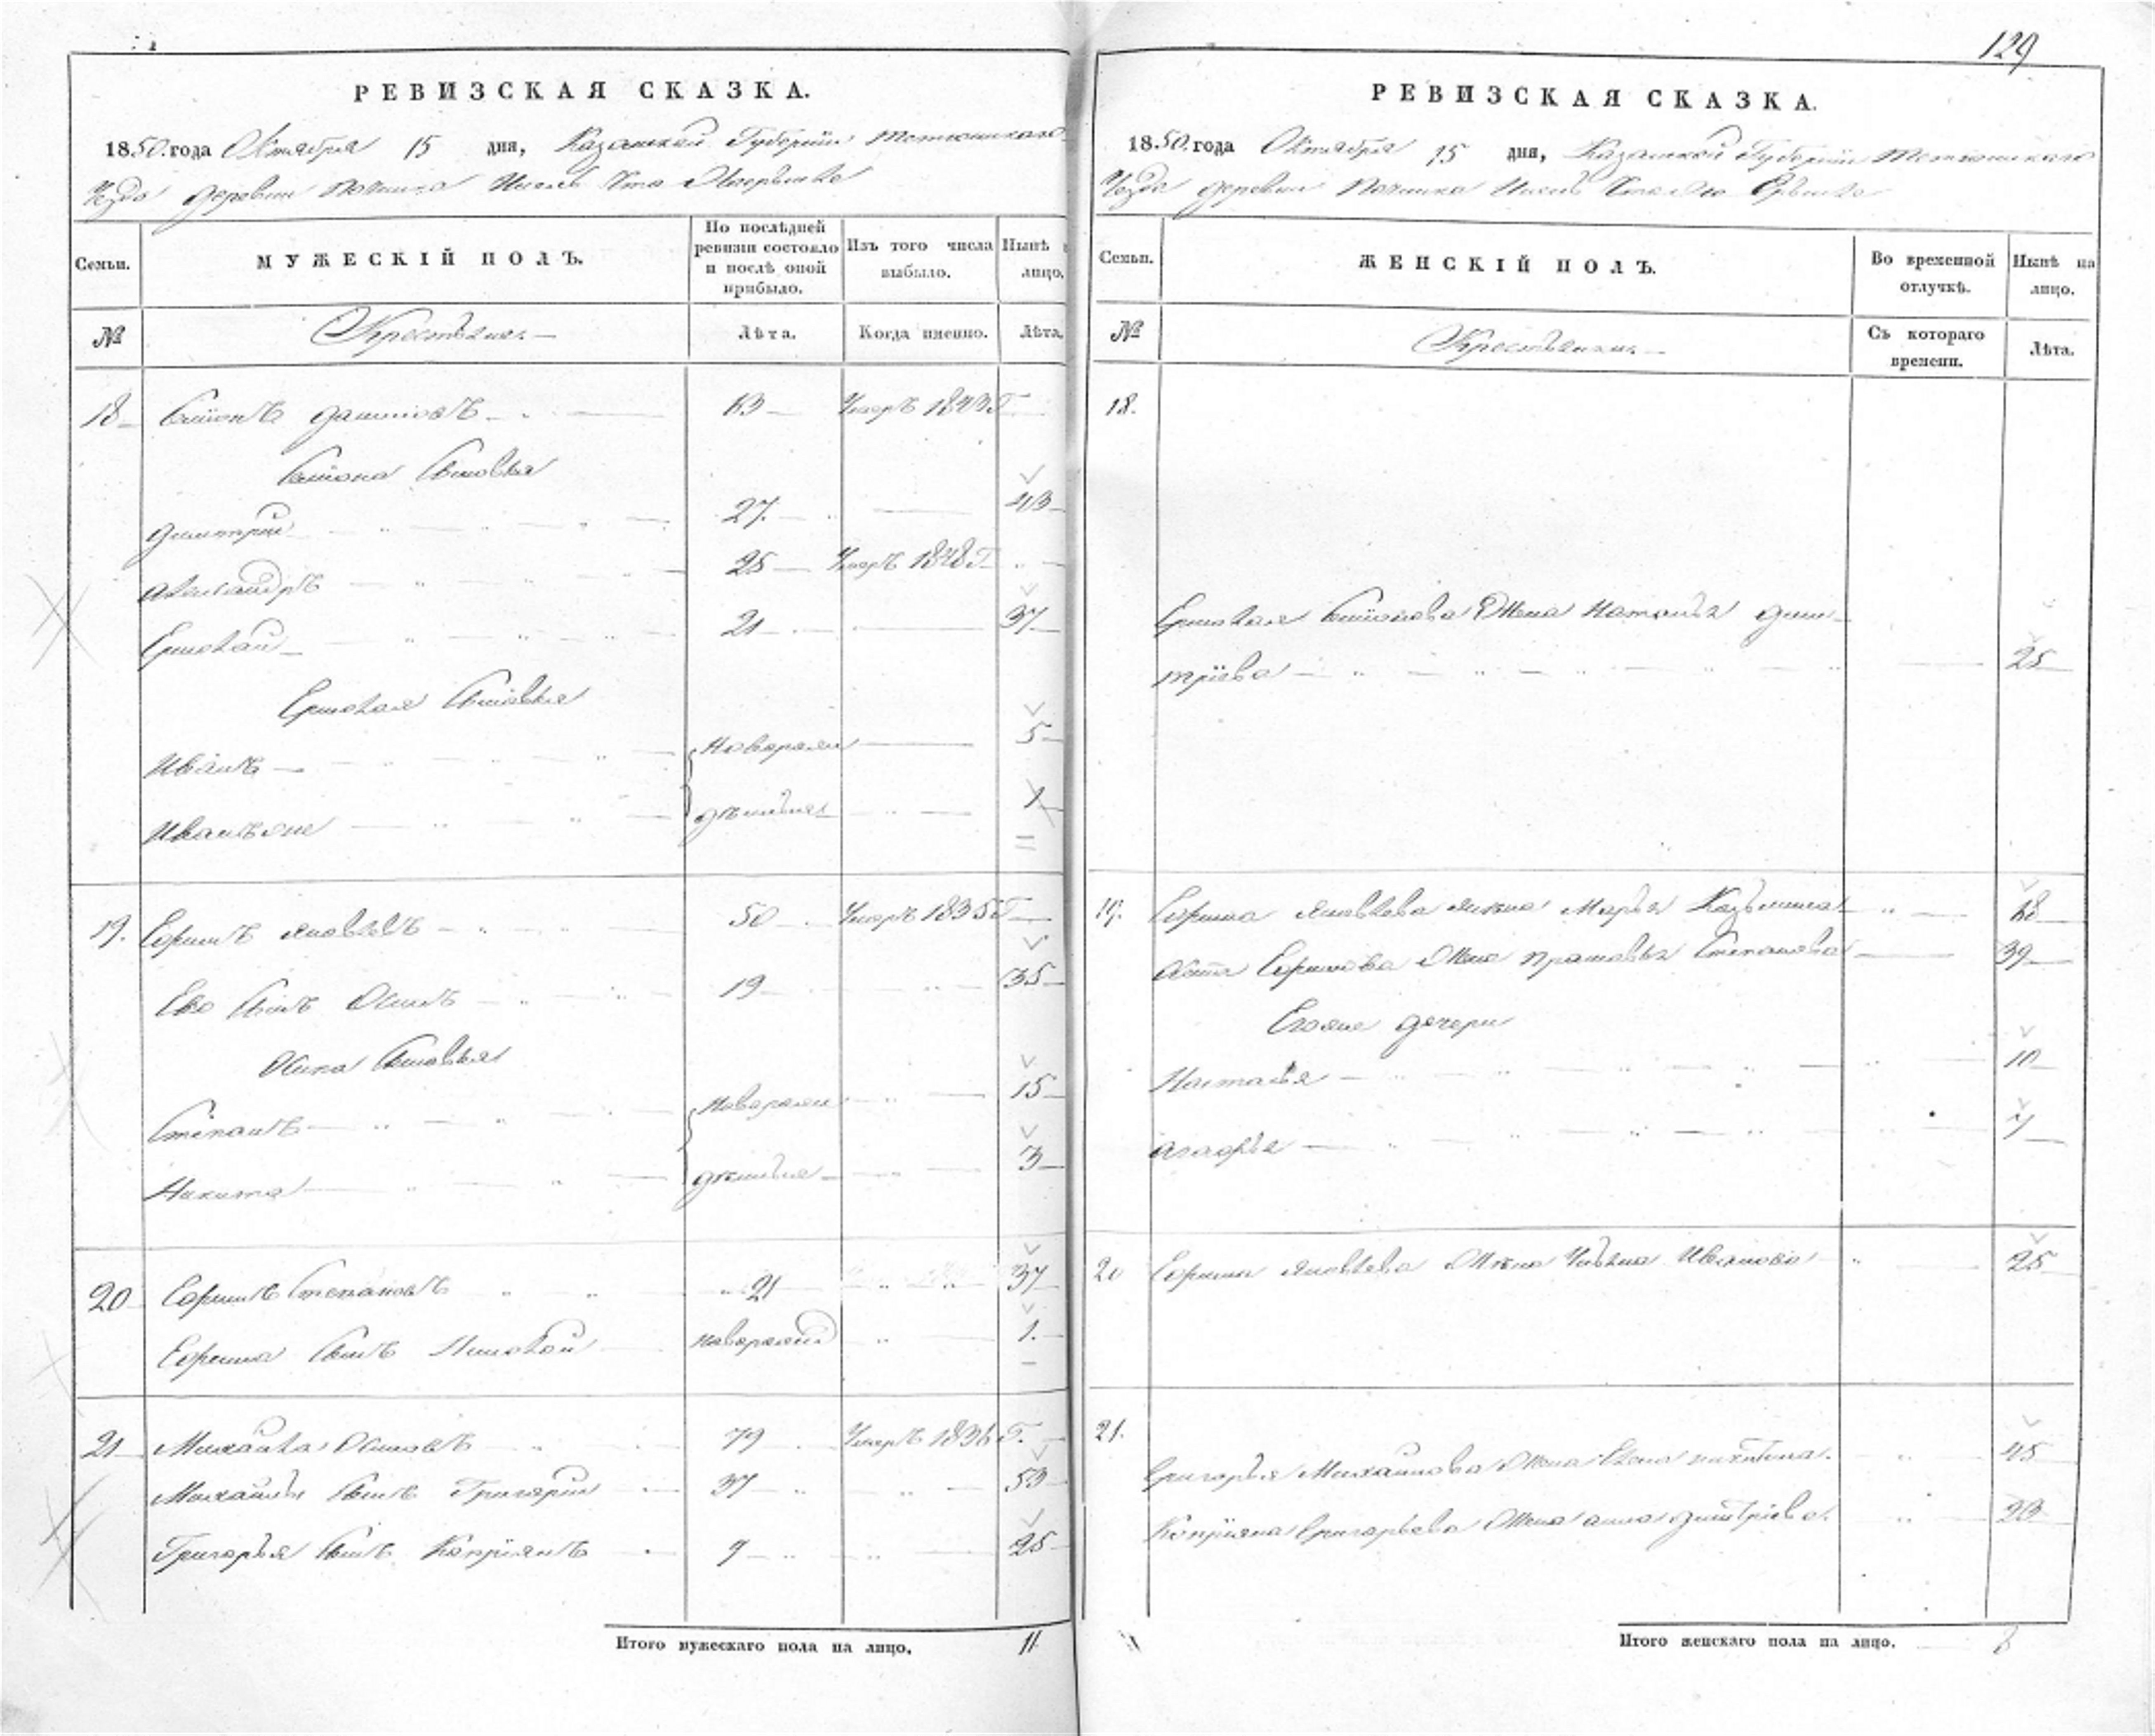 129
РЕВИЗСКАЯ СКАЗКА.
1850. года Октября 15 дня, Казанской Губернии Тетюшскаго
Уезда деревни Починка
Семьи.
МУЖЕСКІЙ ПОЛЪ.
По послѣдней ревизіи состояло и послѣ оной прибыло.
Изъ того числа выбыло.
Нынѣ лицо.
№
Крестьяне.
Лѣта.
Когда именно.
Лѣта.
18 Семіонъ 63 Умеръ 1843 Г
Семіона Сыновья
Димитрій 27. 43
Александръ 25 Умеръ 1848 Г
Ермолай 21 37
Ермолая Сыновья
Иванъ Новорож 5
денныя 1
19. Ефимъ Яковлевъ 50 Умеръ 1835 Г
Его Сынъ Осипъ 19 35
Осипа Сыновья
Степанъ Новорож 15
Никита денныя 3
20 Ефимъ Степановъ 21 37
Ефима Сынъ Новорожд 1.
21 Михайла Осиповъ 79 Умеръ 1836 Г.
Михайлы Сынъ Григорій 37 53
Григорья Сынъ Капріянъ 9 25
Итого мужескаго пола на лицо. 11
РЕВИЗСКАЯ СКАЗКА.
1850. года Октября 15 дня, Казанской Губернии Тетюшскаго
Уезда деревни Починка
Семьи.
ЖЕНСКІЙ ПОЛЪ.
Во временной отлучкѣ.
Нынѣ на лицо.
№
Крестьянки.
Съ котораго времени.
Лѣта.
18.
Ермолая Семіонова Жена Наталья Дими-
тріева 25
19. Ефима Яковлева жена Марья 68
Осипа Ефимова Жена Прасковья Степанова 39
Егоже дочери
Настасья 10
Агафья 7
20 Ефима Яковлева Жена Ульяна Иванова 25
21.
Григорья Михайлова Жена Елена Никитина. 45
Капріяна Григорьева Жена Анна Димитріева. 23
Итого женскаго пола на лицо. 8